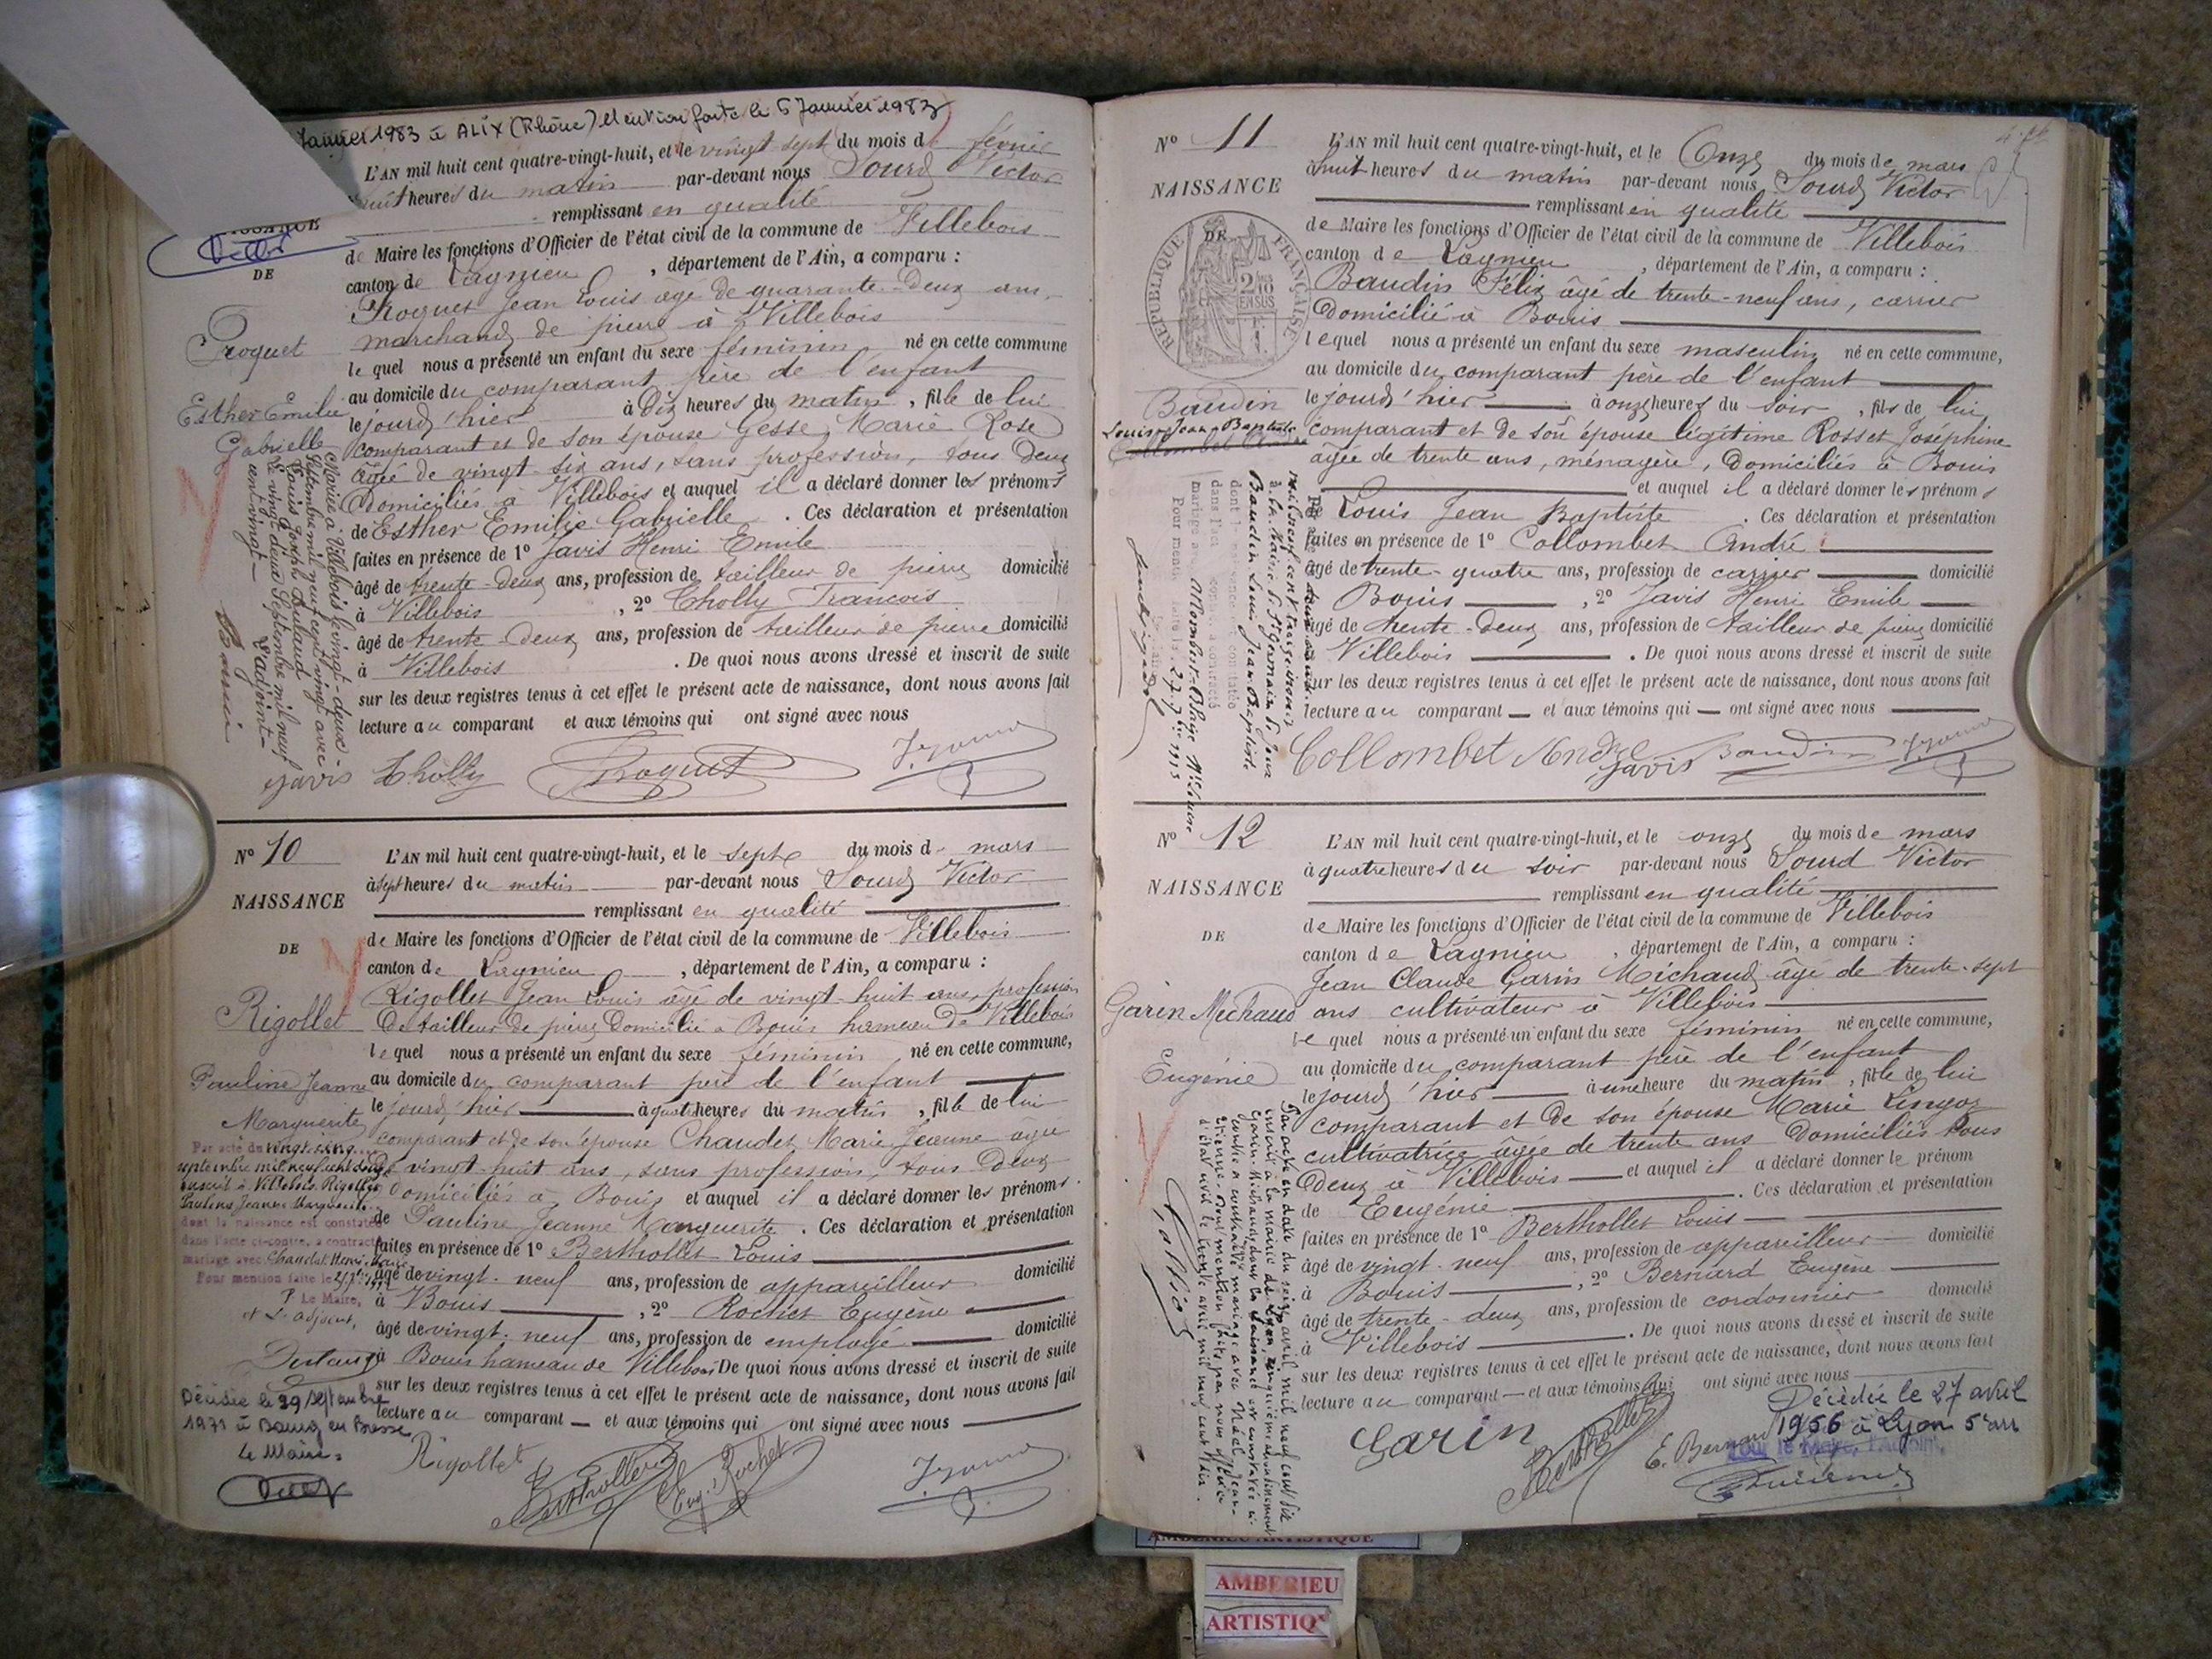 Janvier 1983 à ALIX (Rhône) Mention faite le 6 Janvier 1983
L'AN mil huit cent quatre-vingt-huit, et le vingt sept du mois d février
huit heures du matin par-devant nous Sourd Victor
remplissant en qualité
de Maire les fonctions d'Officier de l'état civil de la commune de Villebois
DE
canton de Lagnieu, département de l'Ain, a comparu :
Proquet Jean Louis âgé de quarante-deux ans,
marchand de pierre à Villebois
Proquet
le quel nous a présenté un enfant du sexe féminin né en cette commune
au domicile du comparant père de l'enfant
Esther Emilie
Gabrielle
le jourd'hier à Dix heures du matin, fille de lui
comparant et de son épouse Gesse Marie Rose
âgée de vingt-six ans, sans profession, tous deux
domiciliés à Villebois et auquel il a déclaré donner les prénoms
de Esther Emilie Gabrielle. Ces déclaration et présentation
faites en présence de 1° Javis Henri Emile
âgé de trente-deux ans, profession de tailleur de pierre domicilié
à Villebois, 2° Cholly François
âgé de trente-deux ans, profession de tailleur de pierre domicilié
à Villebois. De quoi nous avons dressé et inscrit de suite
sur les deux registres tenus à cet effet le présent acte de naissance, dont nous avons fait
lecture au comparant et aux témoins qui ont signé avec nous
Mariée à Villebois le vingt-deux
Septembre mil neuf cent vingt avec
Louis Joseph Dutaud
Le vingt deux Septembre mil neuf
cent vingt
L'adjoint
Javis Cholly Proquet
N° 10
NAISSANCE
DE
Rigollet
Pauline Jeanne
Marguerite
L'AN mil huit cent quatre-vingt-huit, et le sept du mois d. mars
à sept heures du matin par-devant nous Sourd Victor
remplissant en qualité
de Maire les fonctions d'Officier de l'état civil de la commune de Villebois
canton de Lagnieu, département de l'Ain, a comparu :
Rigollet Jean Louis âgé de vingt-huit ans, profession
de tailleur de pierre domicilié à Bouis hameau de Villebois
le quel nous a présenté un enfant du sexe féminin, né en cette commune,
au domicile du comparant père de l'enfant
le jourd'hier à quatre heures du matin, fille de lui
comparant et de son épouse Chaudet Marie Jeanne agée
de vingt-huit ans, sans profession, tous deux
domiciliés à Bouis et auquel il a déclaré donner les prénoms
de Pauline Jeanne Marguerite. Ces déclaration et présentation
faites en présence de 1° Berthollet Louis
âgé de vingt-neuf ans, profession de appareilleur domicilié
à Bouis, 2° Rochet Eugène
âgé de vingt-neuf ans, profession de employé domicilié
à Bouis hameau de Villebois De quoi nous avons dressé et inscrit de suite
sur les deux registres tenus à cet effet le présent acte de naissance, dont nous avons fait
lecture au comparant et aux témoins qui ont signé avec nous
Par acte du vingt-cinq
septembre mil neuf cent douze
inscrit à Villebois Rigollet
Pauline Jeanne Marguerite
dont la naissance est constatée
dans l'acte ci-contre, a contracté
mariage avec Chaudet Henri
Pour mention faite le
P Le Maire,
L'adjoint,
Décédée le 29 septembre
1971 à Bourg en Bresse
Le Maire.
Rigollet Berthollet Eug. Rochet
N° 11
NAISSANCE
DE
RÉPUBLIQUE FRANÇAISE
Baudin
Louis Jean-Baptiste
L'AN mil huit cent quatre-vingt-huit, et le Onze du mois de mars
à huit heures du matin par-devant nous Sourd Victor
remplissant en qualité
de Maire les fonctions d'Officier de l'état civil de la commune de Villebois
canton de Lagnieu, département de l'Ain, a comparu :
Baudin Félix âgé de trente-neuf ans, carrier
domicilié à Bouis
lequel nous a présenté un enfant du sexe masculin né en cette commune,
au domicile du comparant père de l'enfant
le jourd'hier à onze heures du soir, fils de lui
comparant et de son épouse légitime Rosset Joséphine
âgée de trente ans, ménagère, domiciliés à Bouis
et auquel il a déclaré donner les prénoms
de Louis Jean Baptiste. Ces déclaration et présentation
faites en présence de 1° Collombet André
âgé de trente-quatre ans, profession de carrier domicilié
Bouis, 2° Javis Henri Emile
âgé de trente-deux ans, profession de tailleur de pierre domicilié
Villebois. De quoi nous avons dressé et inscrit de suite
sur les deux registres tenus à cet effet le présent acte de naissance, dont nous avons fait
lecture au comparant et aux témoins qui ont signé avec nous
Baudin Louis Jean Baptiste
Collombet André Javis Baudin
N° 12
NAISSANCE
DE
Garin Michaud
Eugénie
L'AN mil huit cent quatre-vingt-huit, et le onze du mois de mars
à quatre heures du soir par-devant nous Sourd Victor
remplissant en qualité
de Maire les fonctions d'Officier de l'état civil de la commune de Villebois
canton de Lagnieu, département de l'Ain, a comparu :
Jean Claude Garin Michaud âgé de trente-sept
ans cultivateur à Villebois
le quel nous a présenté un enfant du sexe féminin né en cette commune,
au domicile du comparant père de l'enfant
le jourd'hier à une heure du matin, fille de lui
comparant et de son épouse Marie Lingoz
cultivatrice âgée de trente ans domiciliés tous
deux à Villebois et auquel il a déclaré donner le prénom
de Eugénie. Ces déclaration et présentation
faites en présence de 1° Berthollet Louis
âgé de vingt-neuf ans, profession de appareilleur domicilié
à Bouis, 2° Bernard Eugène
âgé de trente-deux ans, profession de cordonnier domicilié
à Villebois. De quoi nous avons dressé et inscrit de suite
sur les deux registres tenus à cet effet le présent acte de naissance, dont nous avons fait
lecture au comparant et aux témoins qui ont signé avec nous
Décédée le 27 avril
1966 à Lyon 5e arr
Pour le Maire, l'Adjoint,
Garin Berthollet E. Bernard
AMBERIEU ARTISTIQUE
AMBERIEU
ARTISTIQ